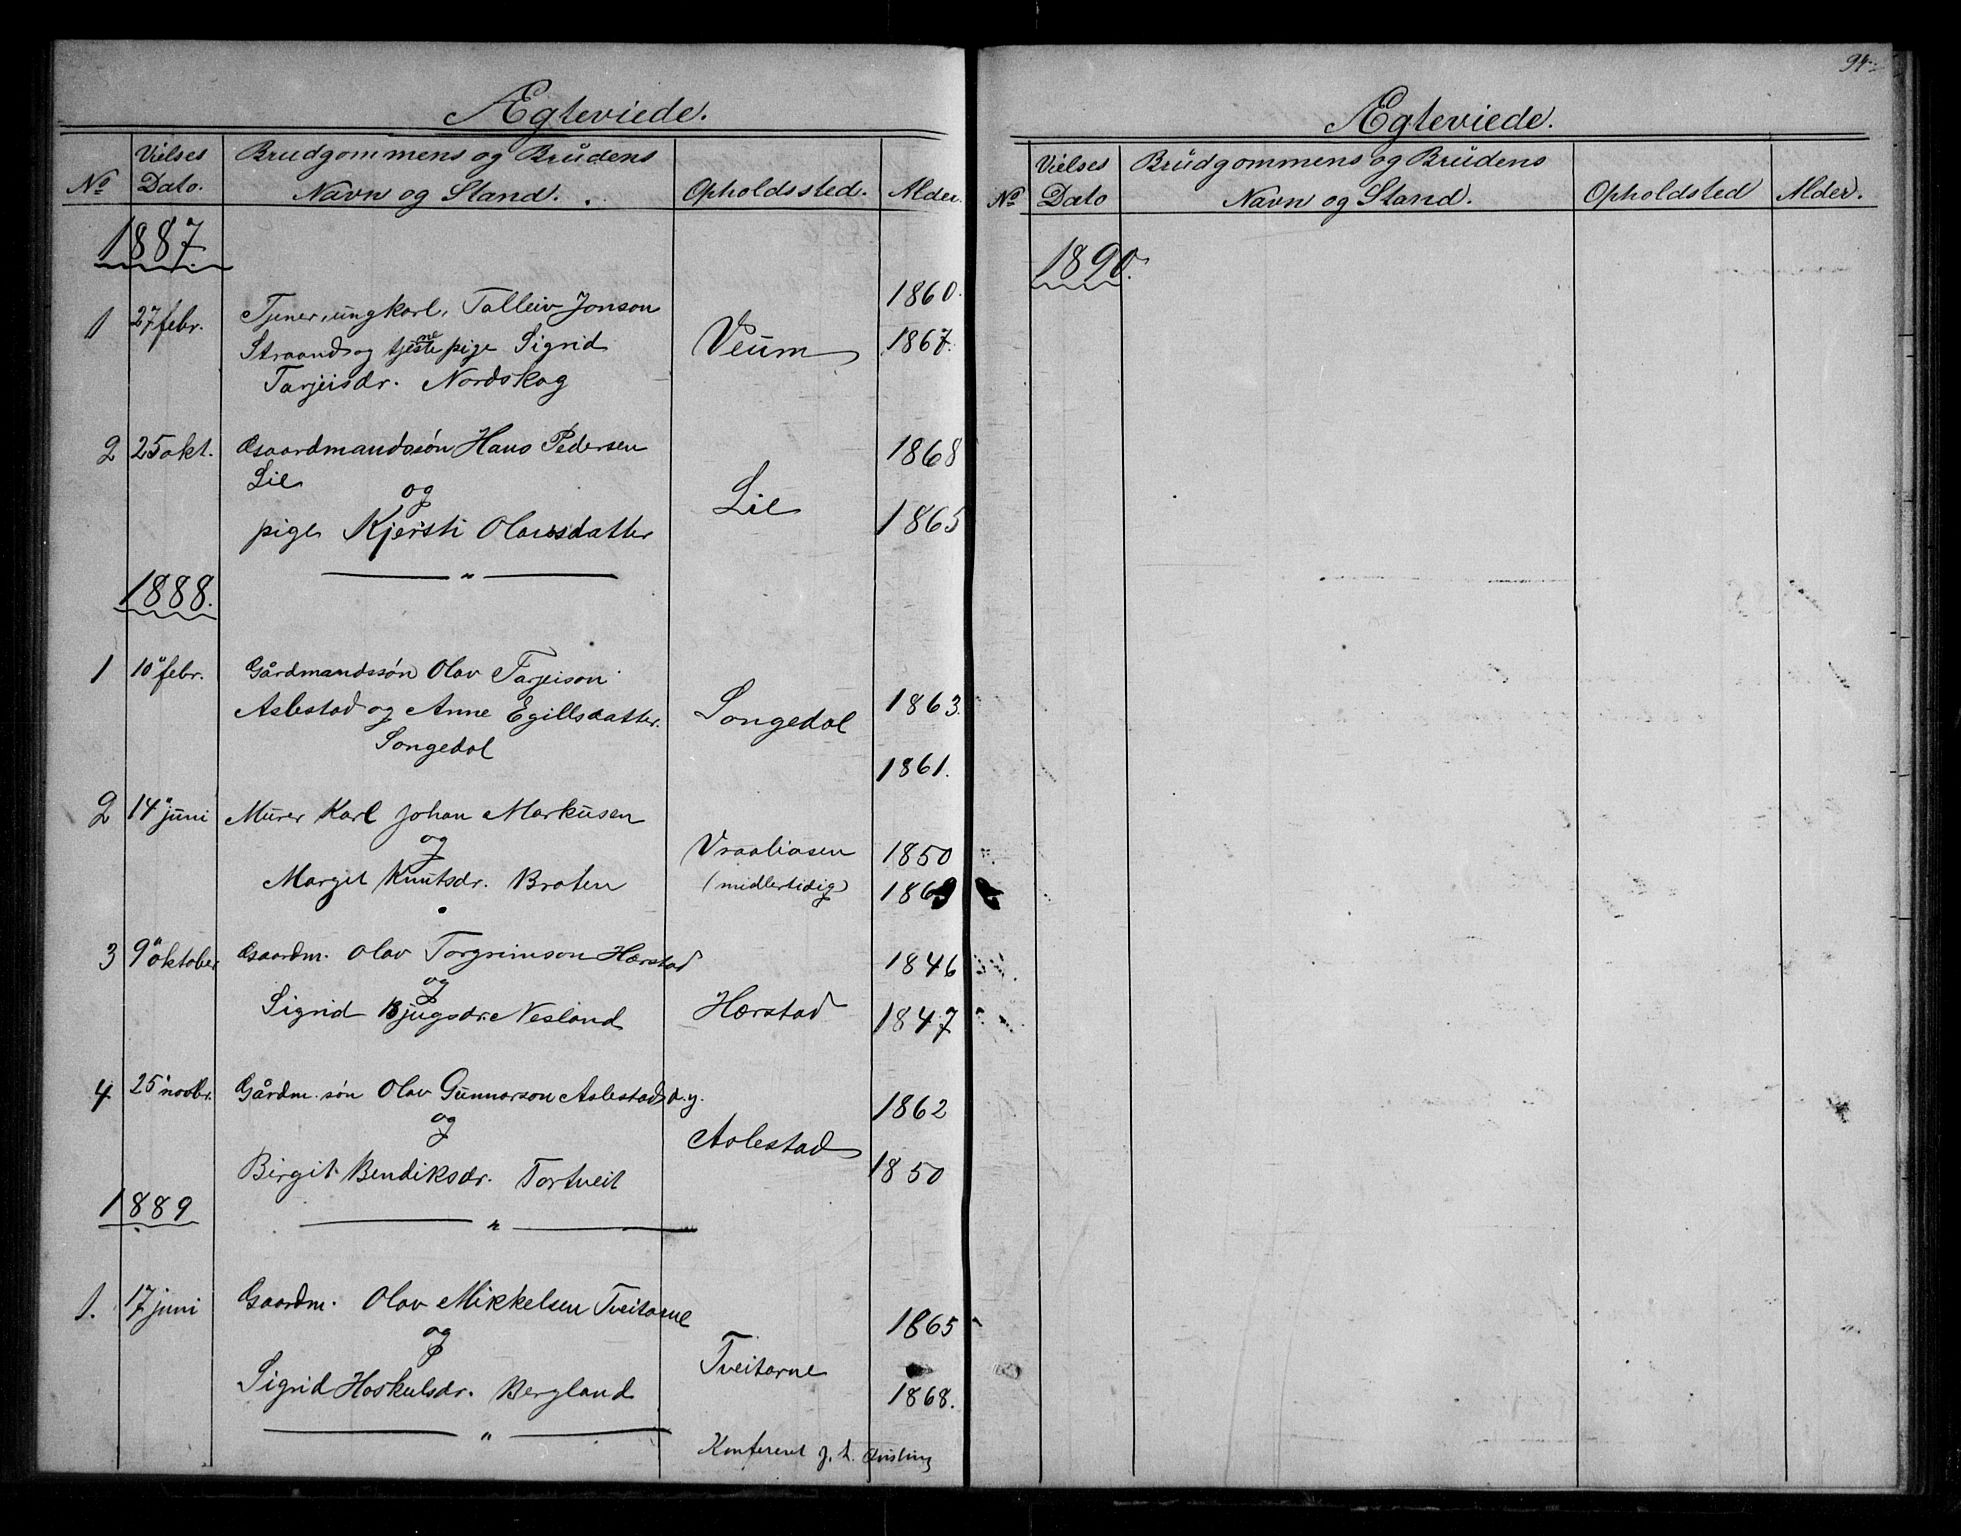 Ægteviede.
No
Vielses Dato.
Brudgommens og Brudens
Navn og Stand.
Opholdssted.
Alder.
1887
1 27 febr. Tjener, ungkarl, Talleiv Jonson 1860.
Straand og tjeneste pige Sigrid Veum 1867.
Tarjeisdr. Nordskog
2 25 okt. Gaardmandssøn Hans Pedersen 1868
Lie
og Lie
pige Kjersti Olavsdatter 1865
"
1888.
1 10 febr. Gårdmandssøn Olav Tarjeison
Aslestad og Anne Egillsdatter. Songedal 1863.
Songedal
1861.
2 14 juni Murer Karl Johan Markusen
og Vraaliosen 1850
Margit Knutsdr. Broten (midlertidig) 1869
3 9 oktober Gaardm. Olav Torgrimson Hærstad 1846
og
Sigrid Bjugsdr. Nesland Hærstad 1847
4 25 novbr. Gårdm. søn Olav Gunnarson Aslestad d.y. 1862
og
Aslestad
Birgit Bendiksdr. Tortveit 1850
1889
"
1. 17 juni Gaardm. Olav Mikkelsen Tveitarne
og 1865
Tveitarne
Sigrid Hoskulsdr. Bergland 1868.
"
Konfereret J. L. Qvisling
94
Ægteviede.
No
Vielses Dato
Brudgommens og Brudens
Navn og Stand.
Opholdsted
Alder.
1890.